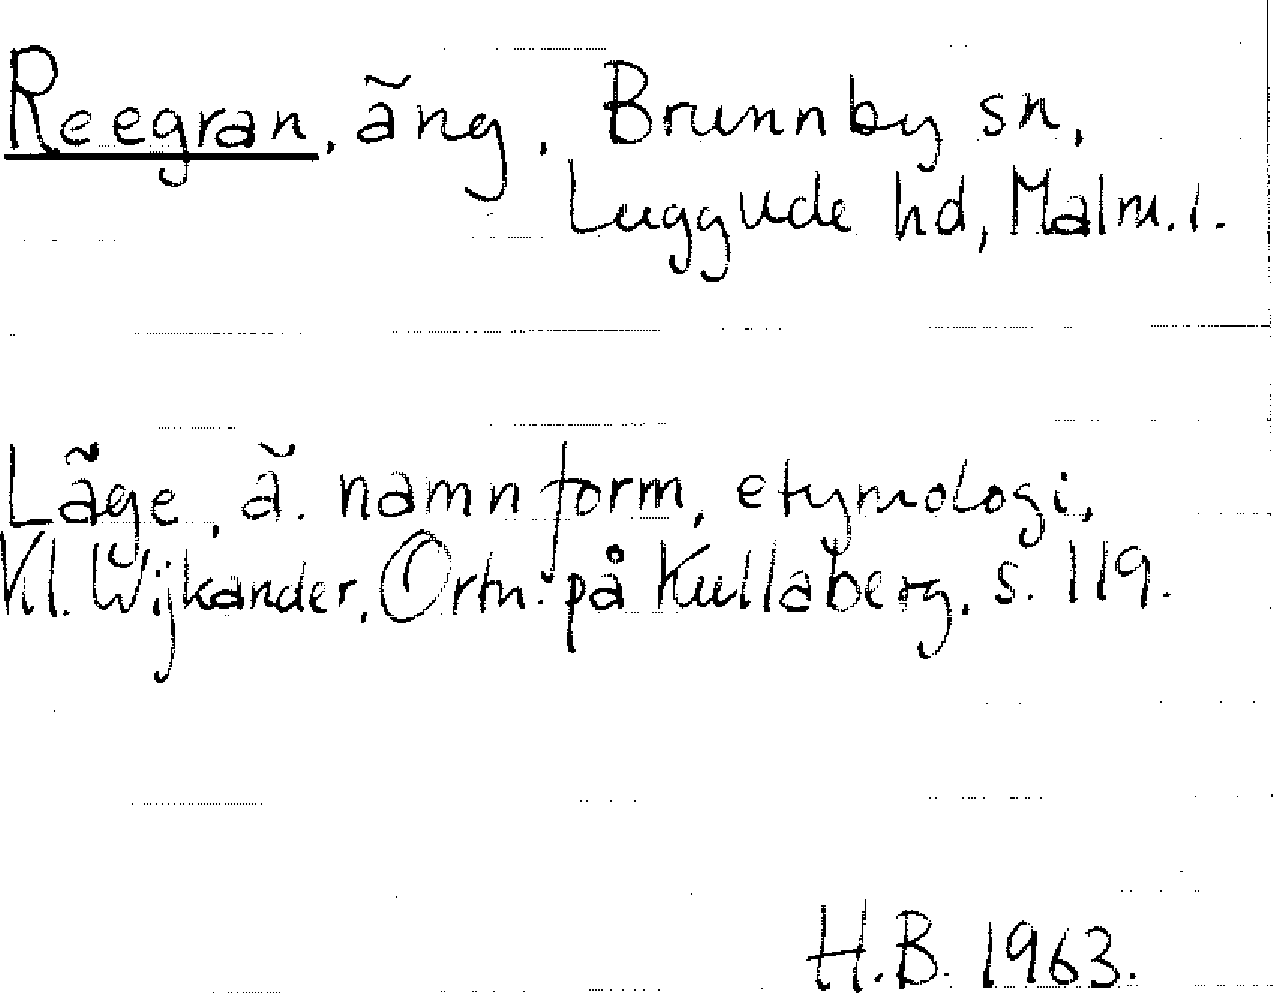 Reegran, äng, Brunnby sn,
Luggude hd, Malm. l.
Läge, ä. namnform, etymologi,
Vil. Wijkander, Ortn. på Kullaberg, s. 119.
H.B. 1963.